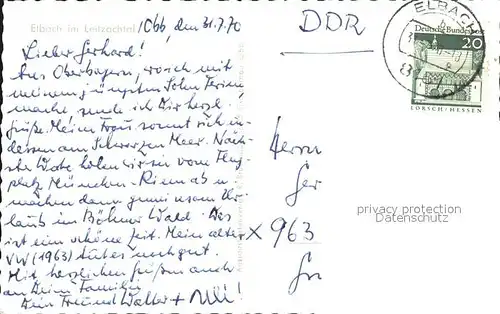 Elbach im Leitzachtal
Elbach, den 31.7.70
Lieber Gerhard!
Aus Oberbayern, wo ich mit
meinem jüngsten Sohn Ferien
mache, sende ich Dir herzl.
Grüße. Meine Frau sonnt sich in-
dessen am Schwarzen Meer. Näch-
ste Woche holen wir sie vom Flug-
platz München - Riem ab u.
machen dann gemeinsam Ur-
laub im Böhmer Wald. Das
ist eine schöne Zeit. Mein alter
VW (1963) tut es noch gut.
Mit herzlichen Grüßen auch
an Deine Familie
Dein Freund Walter +
DDR
ELBACH
Deutsche Bundespost
20
LORSCH/HESSEN
Herrn
Ger
X 963
privacy protection
Datenschutz